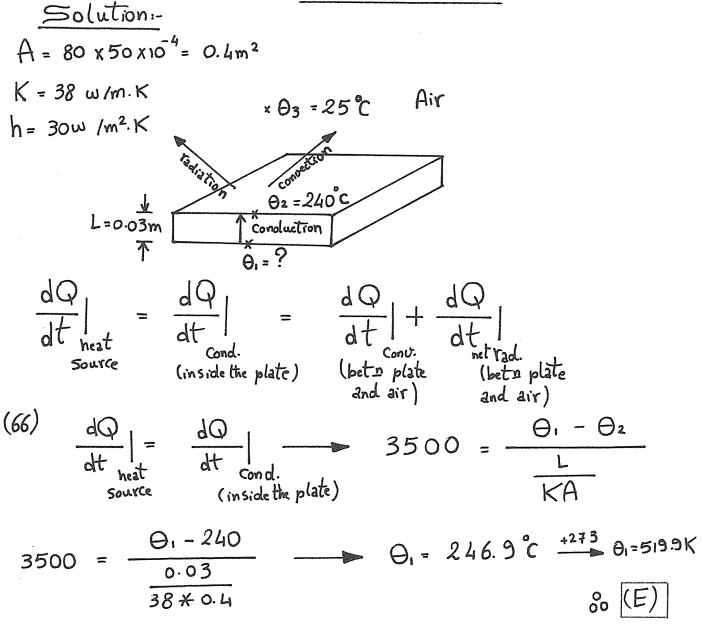 Solution:-
A = 80 × 50 × 10⁻⁴ = 0.4m²
K = 38 w/m.K
h = 30w /m².K
× θ₃ = 25°C Air
radiation
convection
θ₂ = 240°C
L=0.03m
Conduction
θ₁ = ?
dQ/dt| heat source = dQ/dt| Cond. (inside the plate) = dQ/dt| Conv. (betn plate and air) + dQ/dt| net rad. (betn plate and air)
(66) dQ/dt| heat source = dQ/dt| Cond. (inside the plate) → 3500 = (θ₁ - θ₂)/(L/KA)
3500 = (θ₁ - 240)/(0.03/(38 * 0.4)) → θ₁ = 246.9°C +273→ θ₁=519.9K
∴ (E)